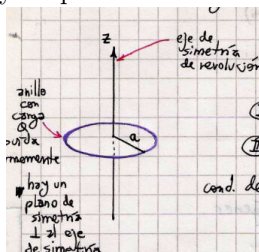 z
eje de
simetría
de revolución
anillo
con
carga
Q
a
hay un
plano de
simetría
⊥ al eje
de simetría
cond. de